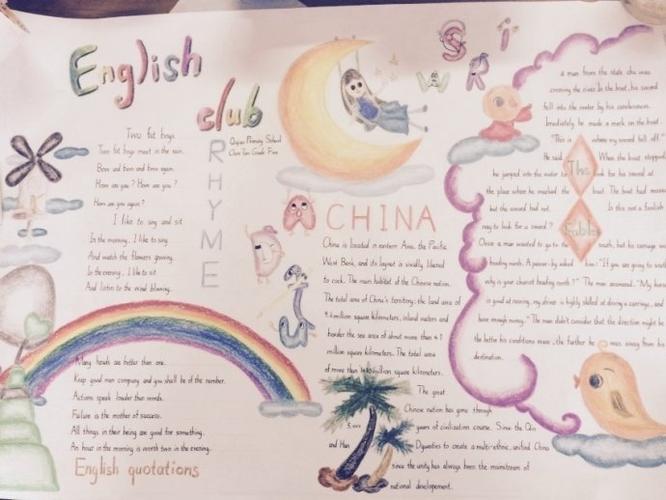 English
club
Qiqiao Primary School
Class Two Grade Five
RHYME
Two fat boys
Two fat boys meet in the rain.
Bow and bow and bow again.
How are you? How are you?
How are you again?
I like to sing and sit
In the morning, I like to sing
And watch the flowers growing.
In the evening, I like to sit
And listen to the wind blowing.
Many heads are better than one.
Keep good men company and you shall be of the number.
Actions speak louder than words.
Failure is the mother of success.
All things in their being are good for something.
An hour in the morning is worth two in the evening.
English quotations
CHINA
China is located in eastern Asia, the Pacific
West Bank, and its layout is vividly likened
to cock. The main habitat of the Chinese nation.
The total area of China's territory: the land area of
9.6 million square kilometers, inland waters and
border the sea area of about more than 4.7
million square kilometers. The total area
of more than million square kilometers.
The great
Chinese nation has gone through
5,000
years of civilization course. Since the Qin
and Han
Dynasties to create a multi-ethnic, unified China
since the unity has always been the mainstream of
national developement.
The
Fable
a man from the state chu was
crossing the river. In the boat, his sword
fell into the water by his carelessness.
Immediately he made a mark on the boat.
"This is where my sword fell off."
He said. When the boat stopped,
he jumped into the water to look for his sword at
the place where he marked the boat. The boat had moved
but the sword had not. Is this not a foolish
way to look for a sword?
Once a man wanted to go to the south, but his carriage was
heading north. A passer-by asked him: "If you are going to south,
why is your chariot heading north?" The man answered, "My horse
is good at running, my driver is highly skilled at driving a carriage, and
have enough money." The man didn't consider that the direction might be
the better his conditions were, the further he was away from his
destination.